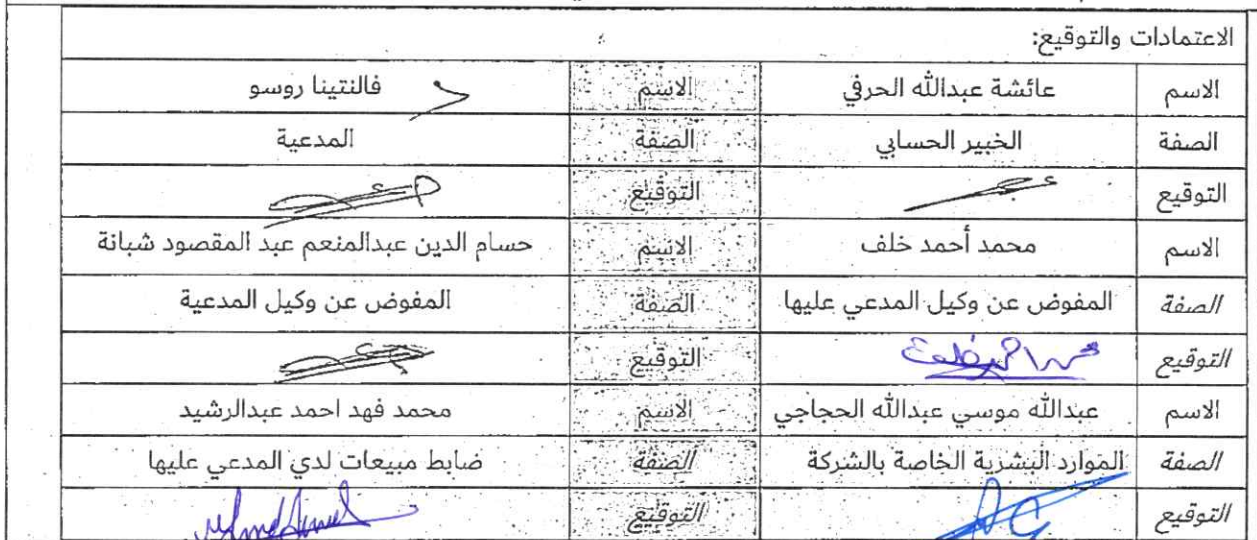 الاعتمادات والتوقيع:
الاسم عائشة عبدالله الحرفي الاسم فالنتينا روسو
الصفة الخبير الحسابي الصفة المدعية
التوقيع التوقيع
الاسم محمد أحمد خلف الاسم حسام الدين عبدالمنعم عبد المقصود شبانة
الصفة المفوض عن وكيل المدعي عليها الصفة المفوض عن وكيل المدعية
التوقيع التوقيع
الاسم عبدالله موسي عبدالله الحجاجي الاسم محمد فهد احمد عبدالرشيد
الصفة الموارد البشرية الخاصة بالشركة الصفة ضابط مبيعات لدي المدعي عليها
التوقيع التوقيع